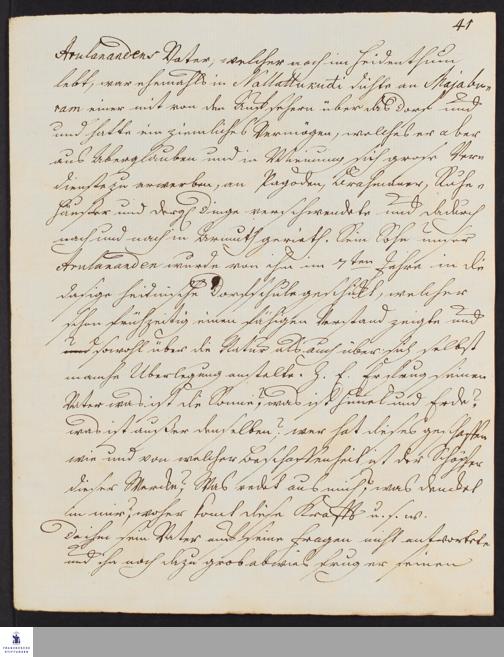 41
Arulanandens Vater, welcher noch im Heidenthum
lebt, war ehemahls in Nallatturudi dichte an Majabu-
ram einer mit von den Aufsehern über das Dorf und
und hatte ein ziemliches Vermögen, welches er aber
aus Aberglauben und in Meinung sich grose Ver-
dienste zu erwerben, an Pagoden, Brahmaner, Ruhe-
häuser und dergl. Dinge verschwendete und dadurch
nach und nach in Armuth gerieth. Sein Sohn unser
Arulananden wurde von ihm im 7ten Jahre in die
dasige heidnische Dorfschule geschikt, welcher
schon frühzeitig einen fähigen Verstand zeigte und
sowohl über die Natur als auch über sich selbst
manche Überlegung anstelte. Z. E. Er frug seinen
Vater was ist die Sonne? was ist Himel und Erde?
was ist ausser denselben? wer hat dieses geschaffen
wie und von welcher Beschaffenheit ist der Schöpfer
dieser Werke? Was redet aus mir? was denket
in mir? woher komt diese Krafft u. s. w.
Da ihm sein Vater auf seine Fragen nicht antwortete
und ihn noch dazu grob abwies frug er seinen
FRANCKESCHE
STIFTUNGEN